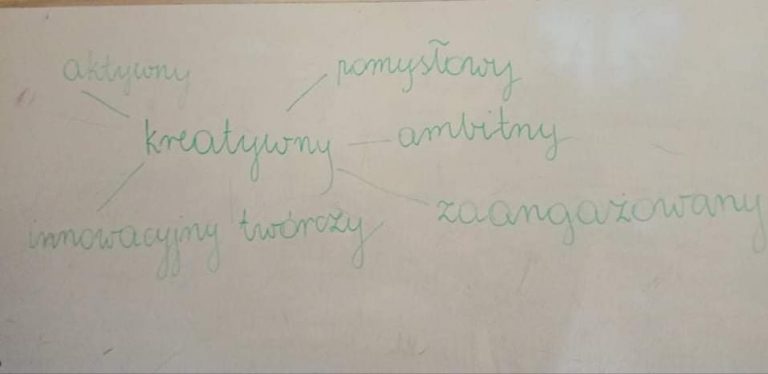 aktywny pomysłowy
kreatywny ambitny
innowacyjny twórczy zaangażowany